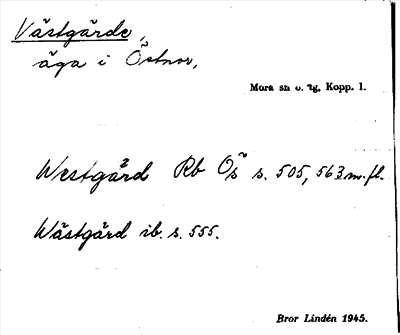 Västgärde,
äga i Östnor,
Mora sn o. tg, Kopp. l.
Westgård Rb Ös s. 505, 563 m.fl.
Wästgård ib. s. 555.
Bror Lindén 1945.